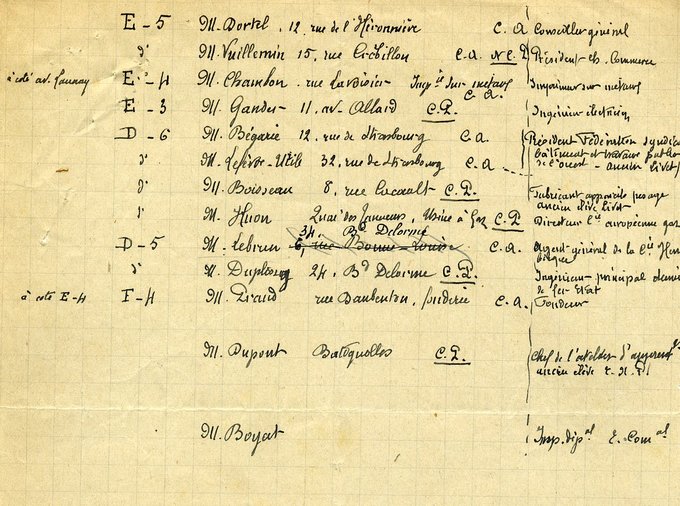 E-5 M. Dortel, 12, rue de l'Héronnière C.A Conseiller général
d° M. Vuillemin 15, rue Crébillon C.A. N.C.P Président ch. Commerce
à coté av. Launay E-4 M. Chambon rue Lavoisier Imp ie sur métaux C.A. Imprimeur sur métaux
E-3 M. Gander 11, av. Allard C.P. Ingénieur électricien
D-6 M. Bégarie 12, rue de Strasbourg C.A. Président Fédération syndicale
bâtiment et travaux publics
d° M. Lefèvre-Utile 32, rue de Strasbourg C.A de l'ouest - ancien Livet
d° M. Boisseau 8, rue Lucault C.P. Fabricant appareils pesage
ancien élève Livet
d° M. Huon Quai des Tanneurs, Usine à Gaz C.P Directeur Cie européenne gaz
34, Bd Delorme
D-5 M. Lebrun 6, rue Bonne-Louise C.A. Agent général de la Cie
d° M. 24, Bd Delorme C.P. Ingénieur principal
de fer Etat
à coté E-4 F-4 M. Giraud rue Baubenton, fonderie C.A. Fondeur
M. Dupont Batignolles C.P. Chef de l'atelier
ancien élève
M. Boyat Insp. dép al E. Com al